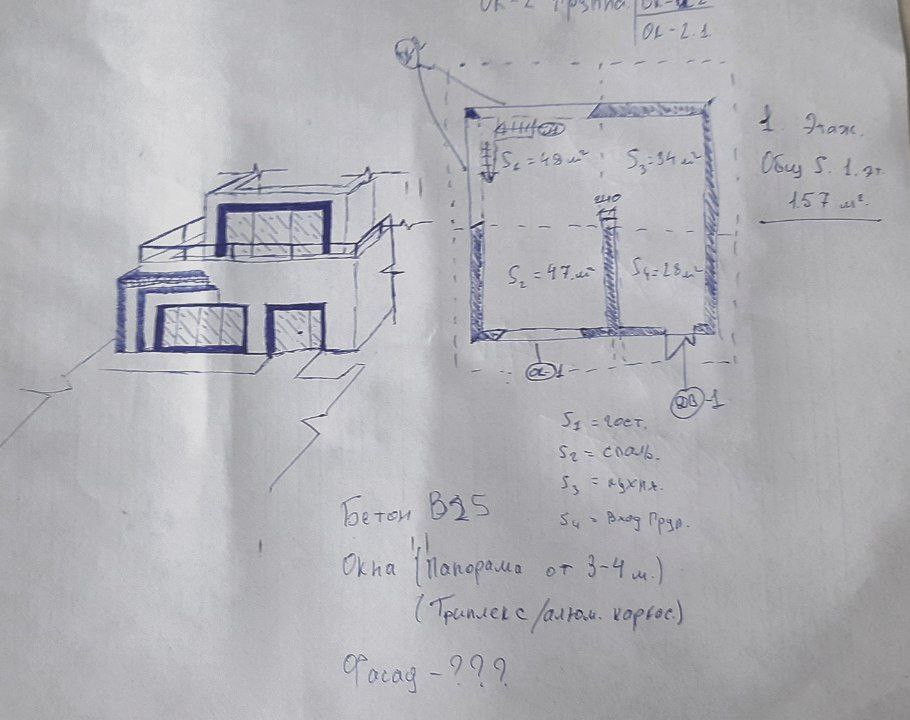 ОК-2 группа
ОК-2.1.
1. Этаж.
Общ S. 1. эт.
157 м².
S₁ = 48 м²
S₃ = 34 м²
S₂ = 47 м²
S₄ = 28 м²
ОК-1
ДВ-1
S₁ = гост.
S₂ = спаль.
S₃ = кухня.
S₄ = Вход Груп.
Бетон В25
Окна (Панорама от 3-4 м.)
(Триплекс/алюм. каркас.)
Фасад - ???